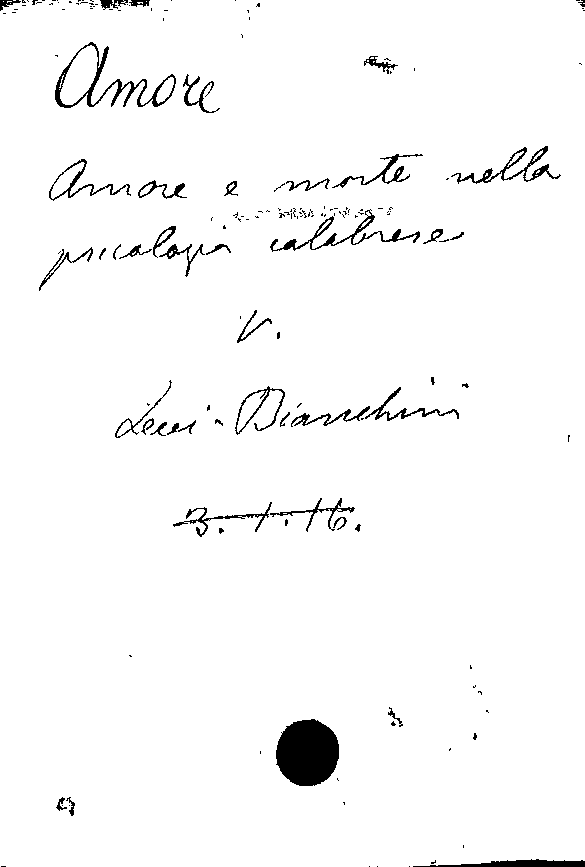 Amore
Amore e morte nella
psicologia calabrese
V.
Levi-Bianchini
3.1.16.